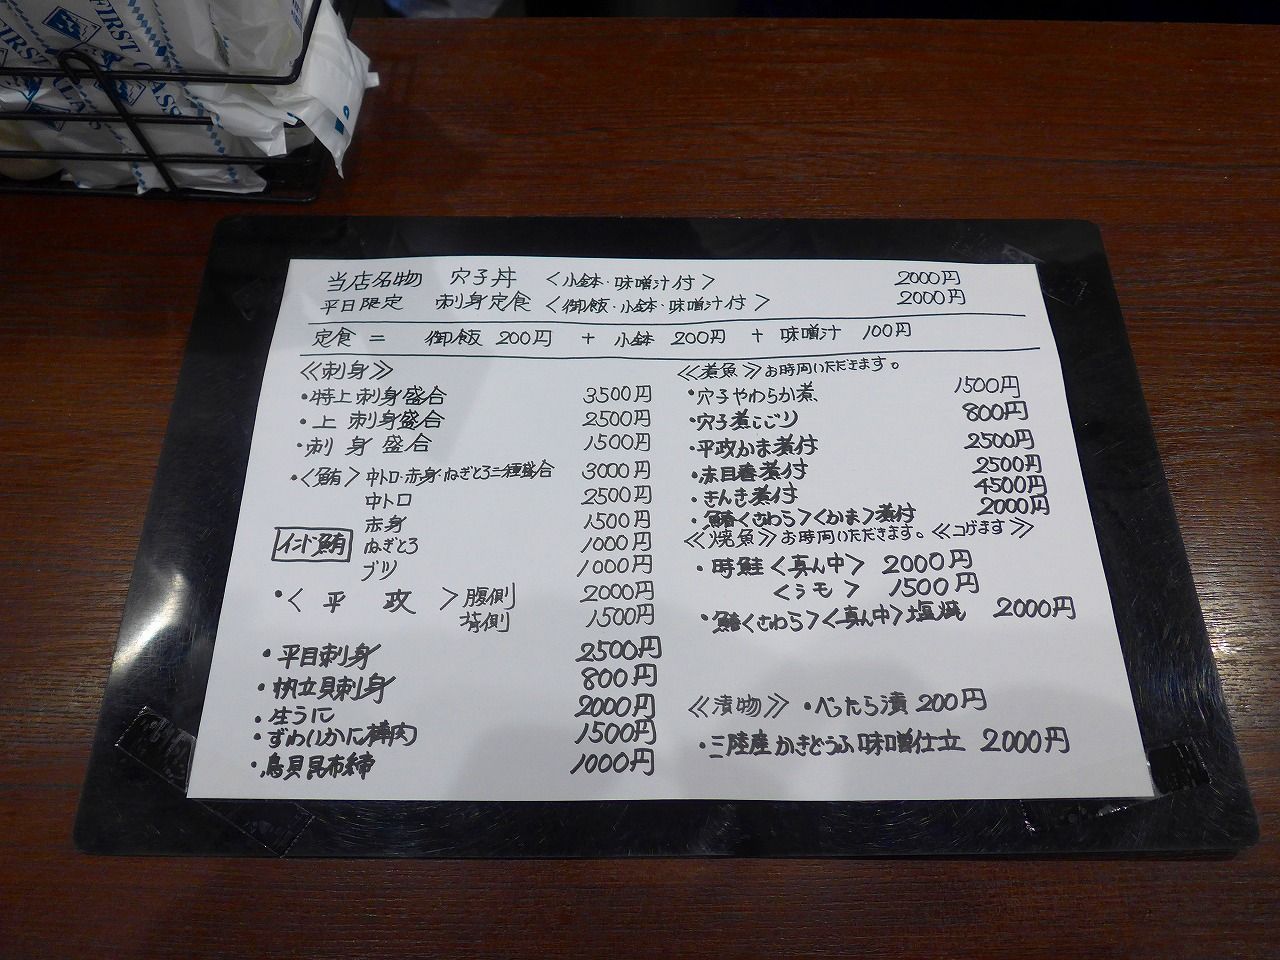 FIRST CLASS
当店名物 穴子丼 <小鉢・味噌汁付> 2000円
平日限定 刺身定食 <御飯・小鉢・味噌汁付> 2000円
定食 = 御飯 200円 + 小鉢 200円 + 味噌汁 100円
≪刺身≫
・特上刺身盛合 3500円
・上 刺身盛合 2500円
・刺身 盛合 1500円
・<鮪> 中トロ・赤身・ねぎとろ三種盛合 3000円
中トロ 2500円
赤身 1500円
インド鮪 ねぎとろ 1000円
ブツ 1000円
・<平 政> 腹側 2000円
背側 1500円
・平目刺身 2500円
・帆立貝刺身 800円
・生うに 2000円
・ずわいかに棒肉 1500円
・鳥貝昆布締 1000円
≪煮魚≫お時間いただきます。
・穴子やわらか煮 1500円
・穴子煮こごり 800円
・平政かま煮付 2500円
・赤目番煮付 2500円
・きんき煮付 4500円
・鰆<さわら><かま>煮付 2000円
≪焼魚≫お時間いただきます。≪コゲます≫
・時鮭<真ん中> 2000円
<シモ> 1500円
・鰆<さわら><真ん中>塩焼 2000円
≪漬物≫ ・べったら漬 200円
・三陸産かきどうふ味噌仕立 2000円